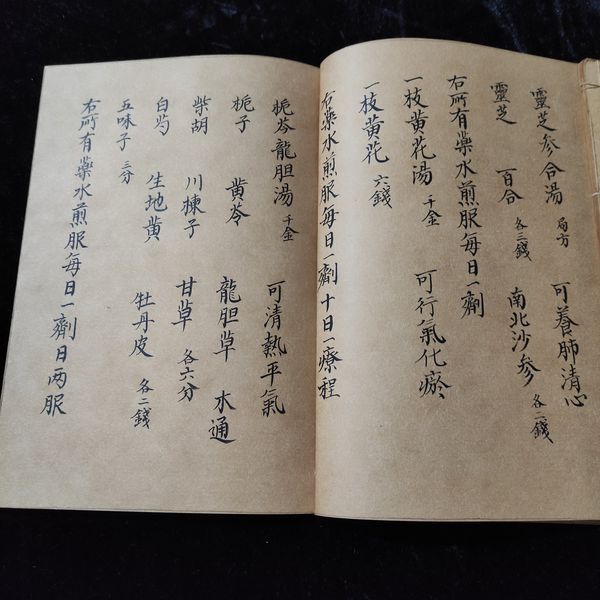 靈芝参合湯 局方 可養肺清心
靈芝 百合 各三錢 南北沙参 各二錢
右所有藥水煎服每日一劑
一枝黄花湯 千金 可行氣化瘀
一枝黄花 六錢
右藥水煎服每日一劑十日一療程
栀芩龍胆湯 千金 可清熱平氣
栀子 黄芩 龍胆草 木通
柴胡 川楝子 甘草 各六分
白芍 生地黄 牡丹皮 各二錢
五味子 三分
右所有藥水煎服每日一劑日两服